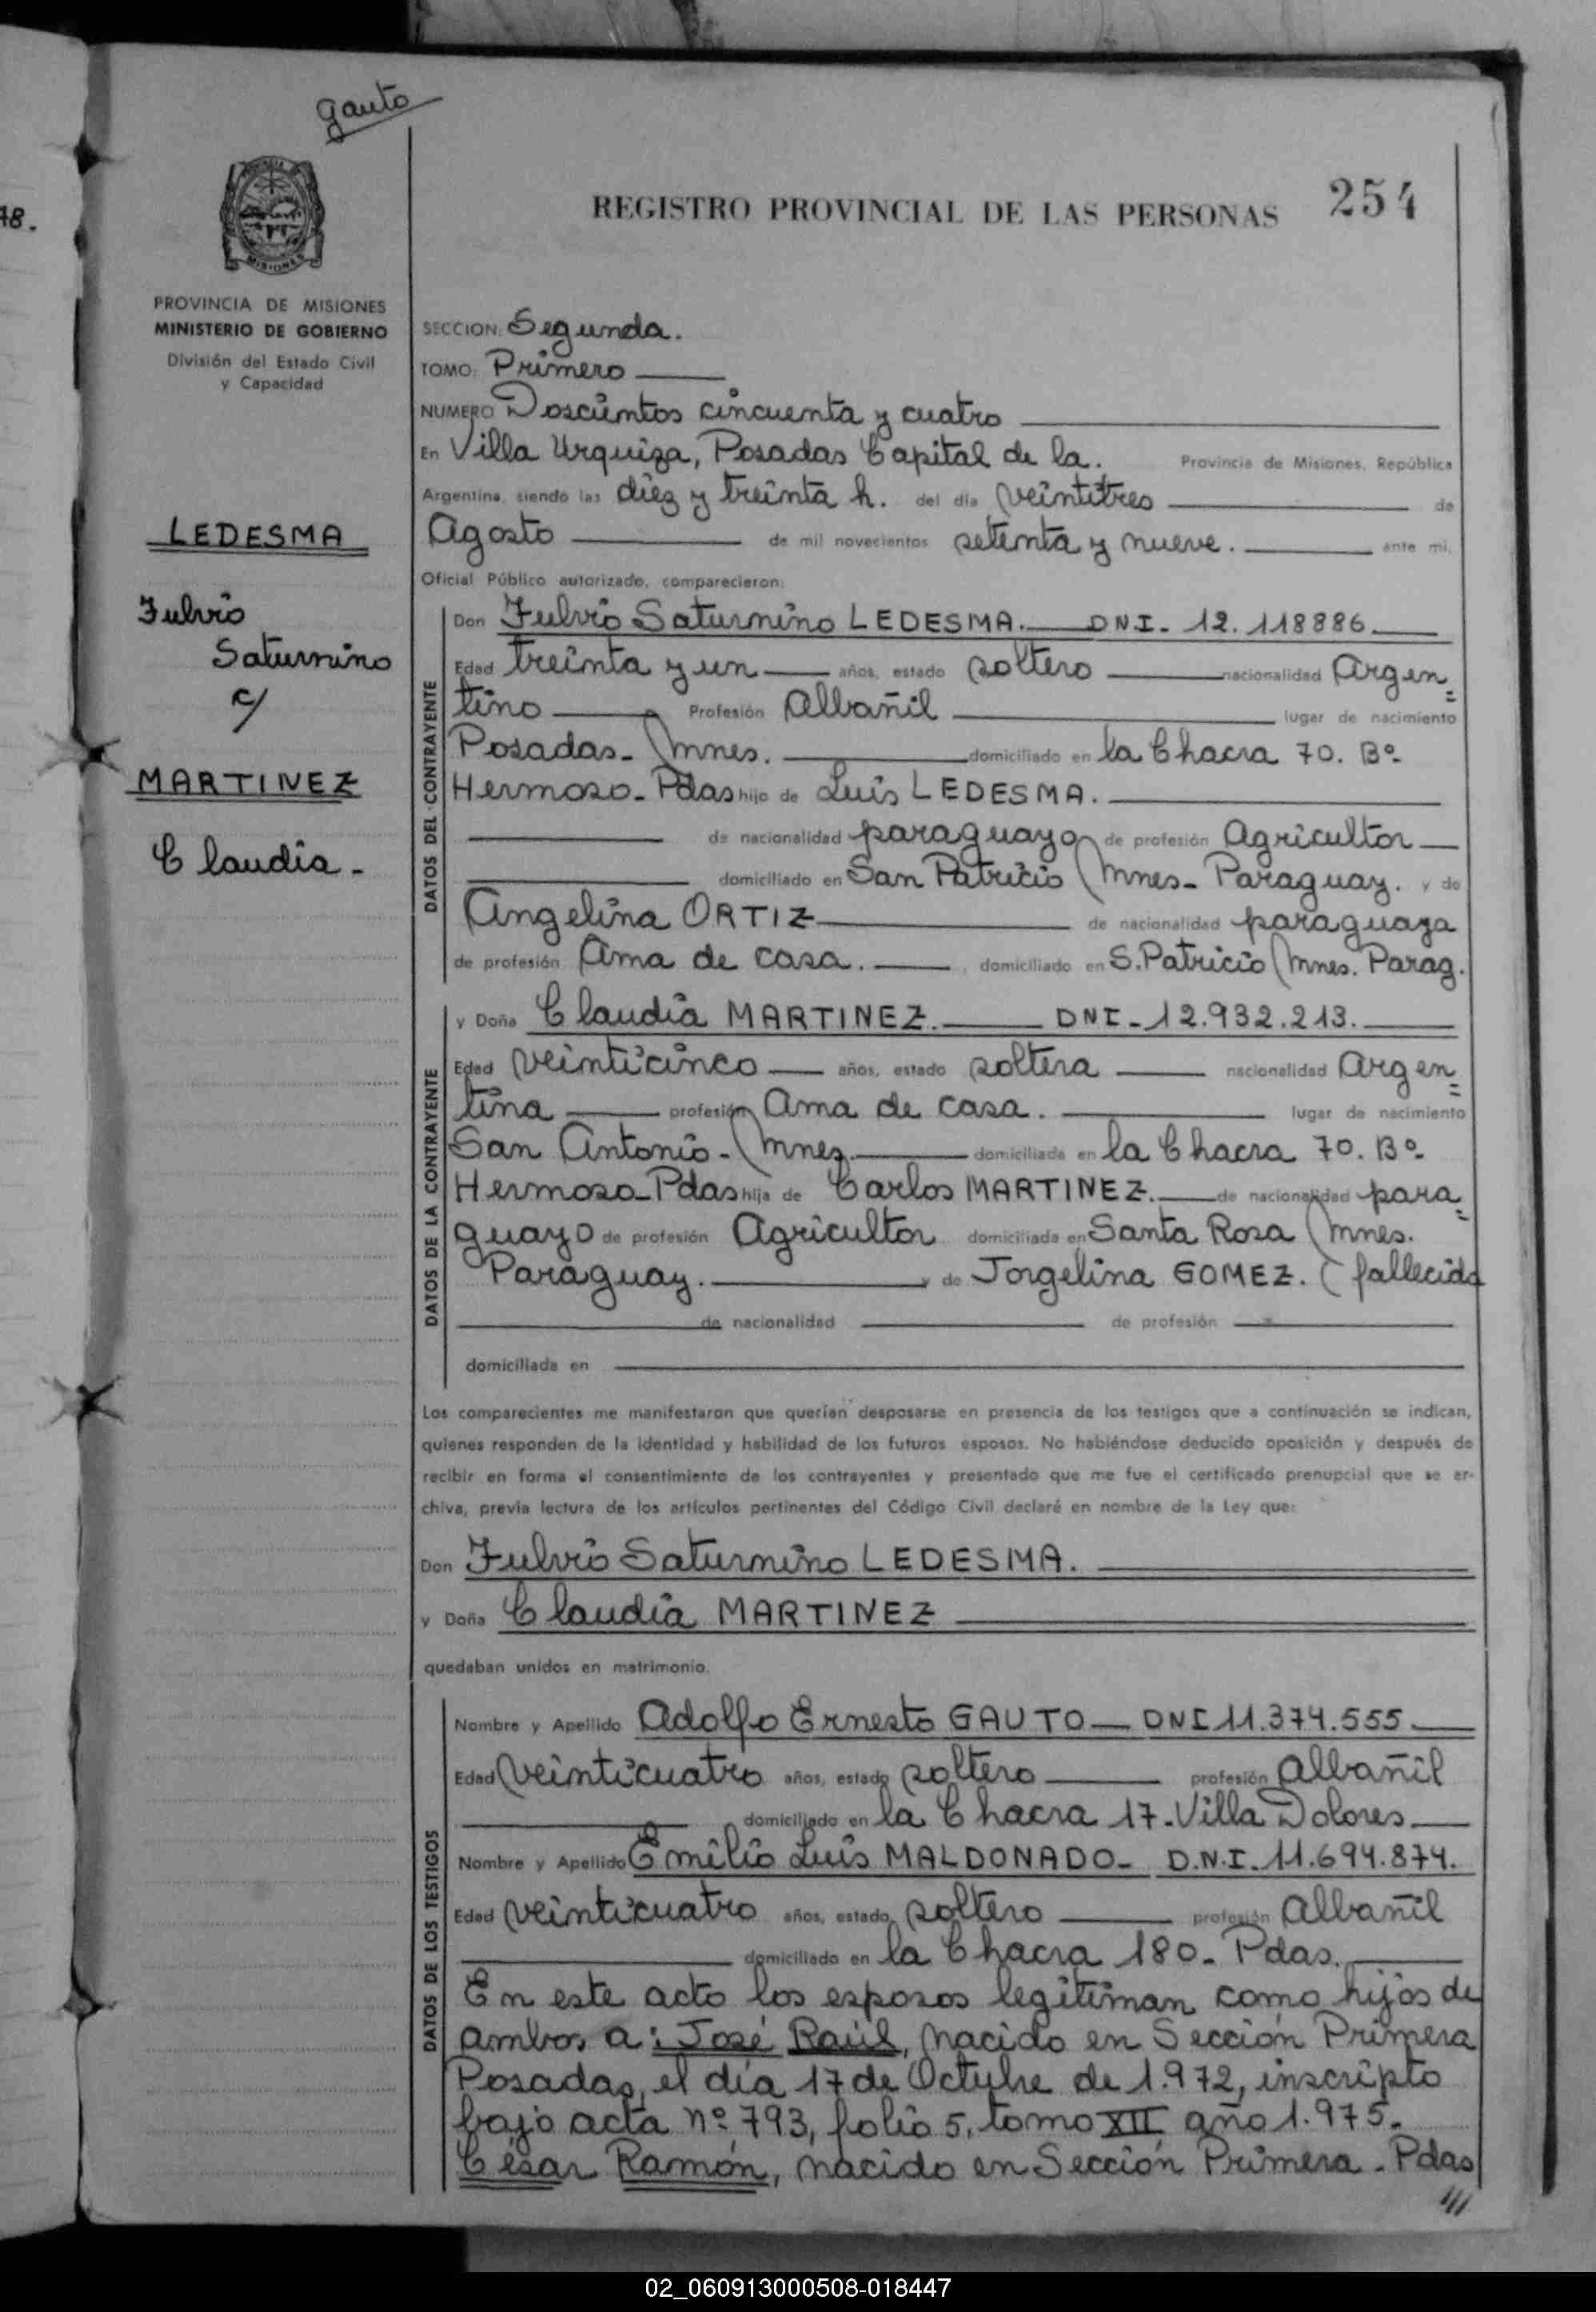 gauto
18.
MISIONES
REGISTRO PROVINCIAL DE LAS PERSONAS 254
PROVINCIA DE MISIONES
MINISTERIO DE GOBIERNO
División del Estado Civil
y Capacidad
SECCION: Segunda.
TOMO: Primero
NUMERO Doscientos cincuenta y cuatro
En Villa Urquiza, Posadas Capital de la. Provincia de Misiones, República
Argentina, siendo las diez y treinta h. del día veintitres de
Agosto de mil novecientos setenta y nueve. ante mi,
Oficial Público autorizado, comparecieron:
LEDESMA
Fulvio
Saturnino
c/
MARTINEZ
Claudia -
DATOS DEL CONTRAYENTE
Don Fulvio Saturnino LEDESMA. DNI- 12.118886
Edad treinta y un años, estado soltero nacionalidad Argen=
tino Profesión Albañil lugar de nacimiento
Posadas- (mnes. domiciliado en la Chacra 70. Bº
Hermoso- Pdas hijo de Luis LEDESMA.
de nacionalidad paraguayo de profesión Agricultor
domiciliado en San Patricio (mnes- Paraguay. y de
Angelina ORTIZ de nacionalidad paraguaya
de profesión Ama de casa. domiciliado en S.Patricio (mnes. Parag.
DATOS DE LA CONTRAYENTE
y Doña Claudia MARTINEZ. DNI-12.932.213.
Edad veinticinco años, estado soltera nacionalidad Argen=
tina profesión Ama de casa. lugar de nacimiento
San Antonio- (mnes. domiciliada en la Chacra 70. Bº
Hermoso-Pdas hija de Carlos MARTINEZ. de nacionalidad para=
guayo de profesión Agricultor domiciliada en Santa Rosa (mnes.
Paraguay. y de Jorgelina GOMEZ. (fallecida
de nacionalidad de profesión
domiciliada en
Los comparecientes me manifestaron que querían desposarse en presencia de los testigos que a continuación se indican,
quienes responden de la identidad y habilidad de los futuros esposos. No habiéndose deducido oposición y después de
recibir en forma el consentimiento de los contrayentes y presentado que me fue el certificado prenupcial que se ar-
chiva, previa lectura de los artículos pertinentes del Código Civil declaré en nombre de la Ley que:
Don Fulvio Saturnino LEDESMA.
y Doña Claudia MARTINEZ
quedaban unidos en matrimonio.
DATOS DE LOS TESTIGOS
Nombre y Apellido Adolfo Ernesto GAUTO DNI 11.374.555
Edad veinticuatro años, estado soltero profesión Albañil
domiciliado en la Chacra 17-Villa Dolores
Nombre y Apellido Emilio Luis MALDONADO- D.N.I. 11.694.874.
Edad veinticuatro años, estado soltero profesión Albañil
domiciliado en la Chacra 180- Pdas.
En este acto los esposos legitiman como hijos de
ambos a: José Raúl, nacido en Sección Primera
Posadas, el día 17 de Octubre de 1.972, inscripto
bajo acta nº 793, folio 5, tomo XII año 1.975.
César Ramón, nacido en Sección Primera - Pdas
///
02_060913000508-018447